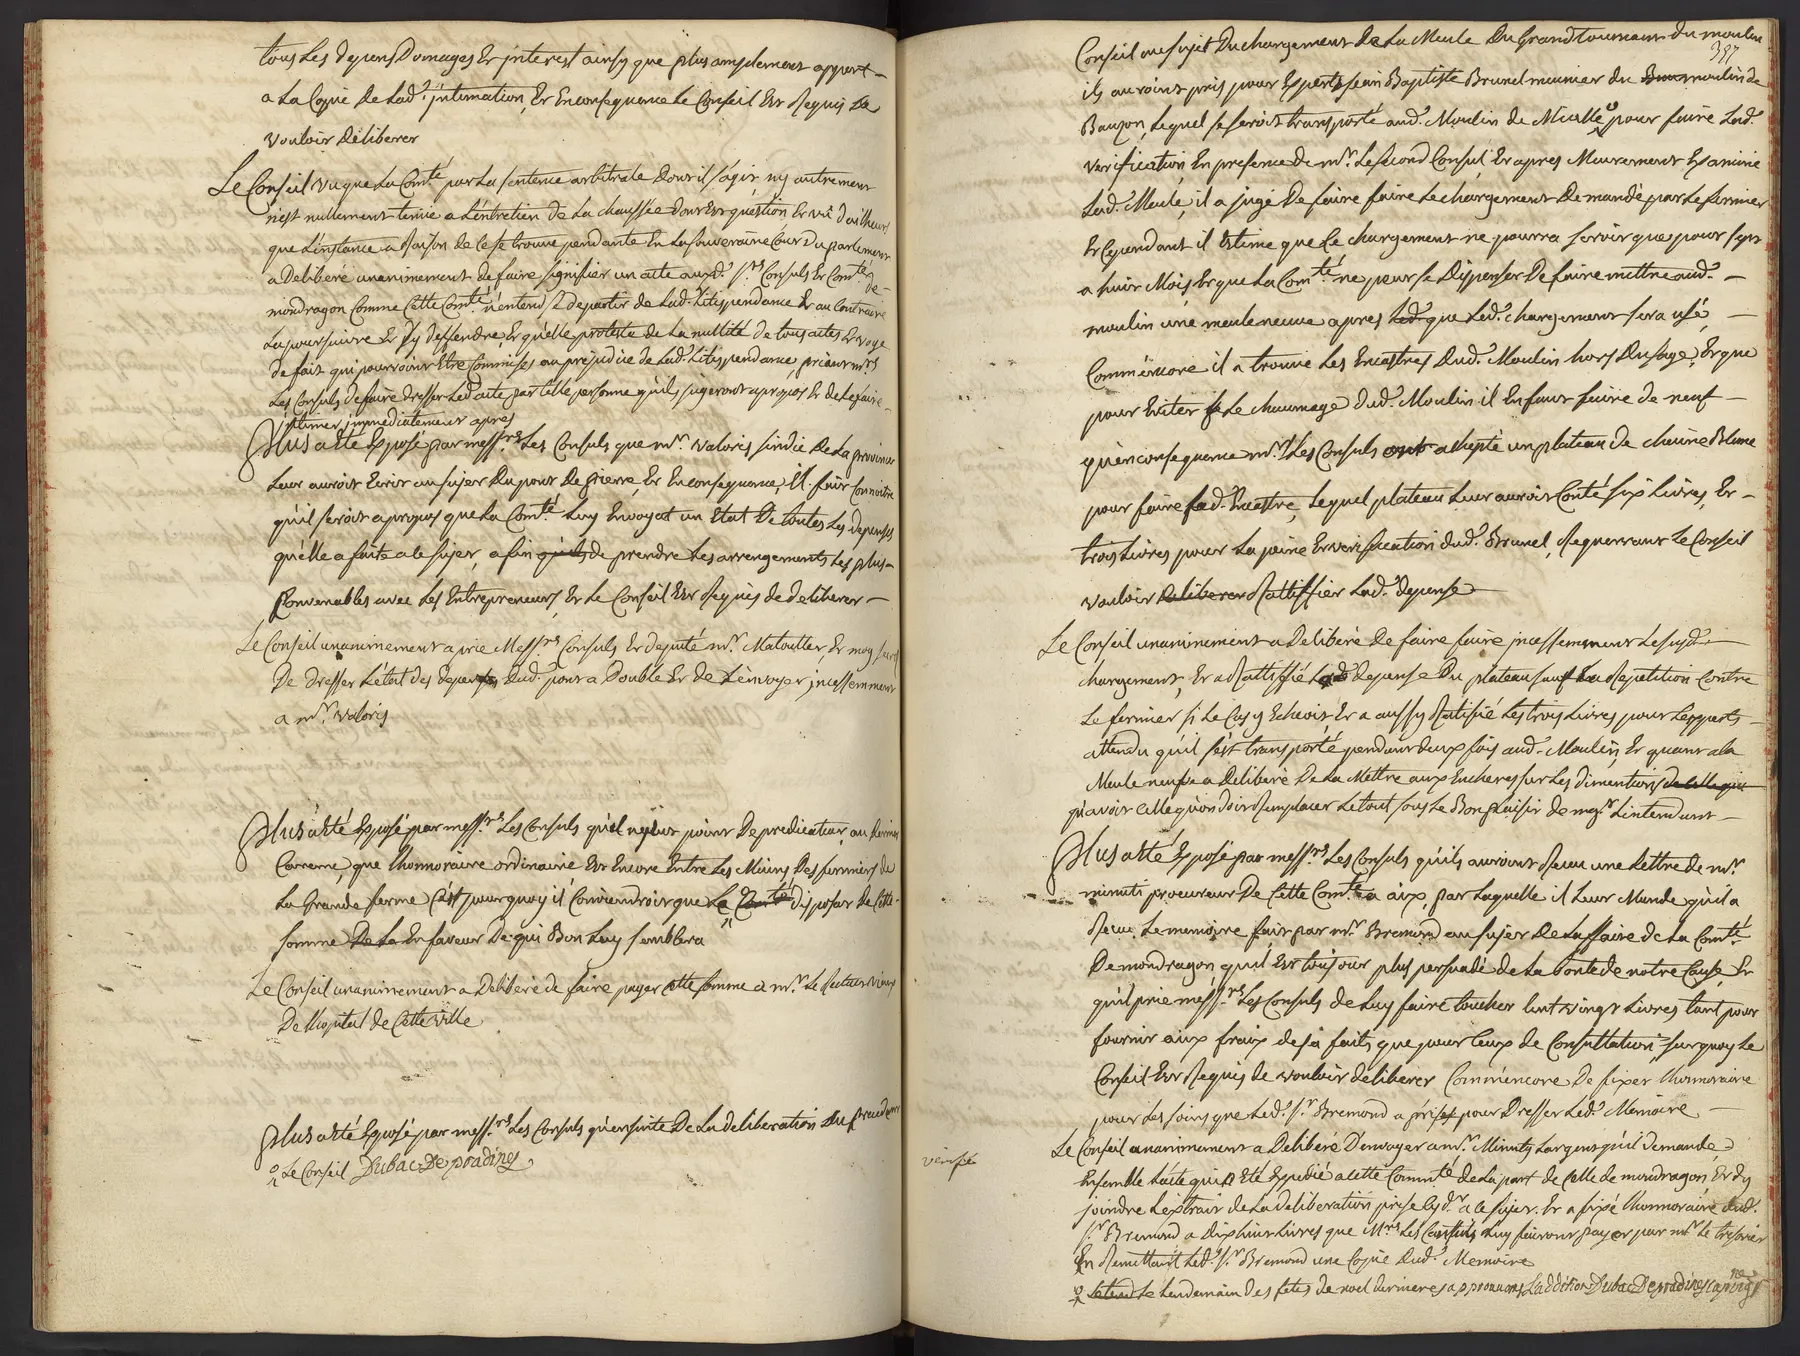 tous Les depens Domages Et jnterest ainsy que plus amplement appert
a La Copie De Lad.e jntimation, Et En consequance Le Conseil Est Requis De
vouloir Déliberer
Le Conseil vu que La Com.té par La sentence arbitrale Dont il s'agit, ny autrement
n'est nullement tenüe a L'entretien de La chaussée dont Est question Et vû d'ailleurs
que L'instance a Raison de Ce se trouve pendante En La souveraine Cour Du parlement
a Deliberé unanimement de faire signifier un acte auxd. s.rs Consuls Et Com.té de
mondragon Comme Cette Com.té n'entend se Departir de Lad.e Litispendance Et au Contraire
La poursuivre Et s'y deffendre, Et qu'elle proteste de La nullité de tous actes Et voye
de fait qui pourroint Etre Commises au prejudice de Lad.e Litispendance, priant m.rs
Les Consuls de faire dresser Led. acte par telle personne qu'ils jugeront a propos Et de Le faire
jntimer jmmediatement apres
Plus a été Exposé par mess.rs Les Consuls que m.r valoris sindic De La province
Leur auroit Ecrit au sujet Du pont De pierre, Et En consequance, Il fait Connoitre
qu'il seroit a propos que La Com.té Luy Envoyat un Etat De toutes Les depenses
qu'elle a faite a Ce sujet, afin qu'ils de prendre Les arrengements Les plus
Convenables avec Les Entrepreneurs Et Le Conseil Est Requis de deliberer
Le Conseil unanimement a prié Mess.rs Consuls Et deputé m.r Matoutter Et moy
De Dresser L'état des depenses Dud. pont a Double Et de L'envoyer jncessemment
a m.r valoris
Plus a été Exposé par mess.rs Les Consuls qu'il n'y eut point De predicateur au dernier
Careme, que L'honnoraire ordinaire Est Encore Entre Les Mains Des fermiers de
La Grande ferme C'est pourquoy il Conviendroit que Le Com.té disposat De Cette
somme De La En faveur De qui Bon Luy semblera
Le Conseil unanimement a Deliberé de faire payer cette somme a m.r Le Recteur vieux
De L'hopital de Cette ville
Plus a été Exposé par mess.rs Les Consuls qu'ensuite De La deliberation du precedent
Le Conseil Dubac De pradines
387
Conseil au sujet Du chargement De La Meule Du Grand tournant du moulin
ils auroint pris pour Expert Jean Baptiste Brunel meunier du moulin de
Bauzon, Lequel se seroit transporté aud. Moulin de pour faire Lad.e
verification, En presence de m.r Le second Consul, Et apres Meurement Examiné
Lad.e Meule, il a jugé De faire faire Le chargement Demandé par Le fermier
Et Cependant il Estime que Le chargement ne pourra servir que pour sept
a huit Mois Et que La Com.té ne peut se Dispenser De faire mettre aud.
moulin une meule neuve apres que Led. chargement sera usé,
Comm'encore il a trouvé Les Encastres Dud. Moulin hors Dusage, Et que
pour Eviter Le chaumage dud. Moulin il En faut faire de neuf
qu'en consequance m.rs Les Consuls ont achepté un plateau de chaine Blanc
pour faire Lad. Encastre, Lequel plateau Leur auroit Couté six Livres, Et
trois Livres pour La peine Et verification dud. Brunel, Requerrant Le Conseil
vouloir deliberer Rattiffier Lad.e depense
Le Conseil unanimement a Deliberé De faire faire jncessemment Le susd.
chargement, Et a Rattiffié La depense Du plateau sauf La Repetition Contre
Le fermier si Le Cas y Echeoit, Et a aussy Ratifié Les trois Livres pour L'expert
attendu qu'il s'est transporté pendant deux fois aud. Moulin, Et quant a La
Meule neufve a deliberé De La Mettre aux Encheres sur Les dimentions de celle que
qu'avoit celle qu'on doit Remplacer Le tout sous Le Bon plaisir de mg.r L'intendant
Plus a été Exposé par mess.rs Les Consuls qu'ils auroint Receu une Lettre de m.r
minuti procureur De Cette Com.té a aix, par Laquelle il Leur Mande qu'il a
Receu Le memoire fait par m.r Bremond au sujet De L'affaire de La Com.té
De mondragon qu'il Est toujour plus persuadé de La Bonté de notre Cause, Et
qu'il prie mess.rs Les Consuls de Luy faire toucher Cent vingt Livres tant pour
fournir aux fraix deja faits que pour Ceux de Consultation, sur quoy Le
Conseil Est Requis de vouloir deliberer Comm'encore De fixer L'honnoraire
pour Les soins que Led.s.r Bremond a pris pour Dresser Led. Memoire
Le Conseil unanimement a Deliberé D'envoyer a m.r Minuty L'argent qu'il demande,
Ensemble L'acte qui a Eté Expedié a Cette Comm.té de La part de Celle de mondragon Et d'y
joindre L'extrait de La deliberation prise Cejd. a ce sujet. Et a fixé L'honnoraire dud.
s.r Bremond a Dix huit Livres que M.rs Les Consuls Luy fairont payer par m.r Le tresorier
En Remettant Led. s.r Bremond une Copie Dud. Memoire
Le Lendemain des fetes de noel dernieres approuvant L'addition Dubac De pradines
verifié